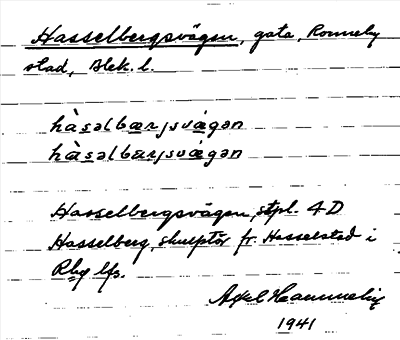 Hasselbergsvägen, gata, Ronneby
stad, Blek. l.
hàsəlbærjsvägən
hàsəlbærjsvägən
Hasselbergsvägen, stpl. 4D
Hasselberg, skulptör fr. Hasselstad i
Rby lfs.
Axel Hammelin
1941